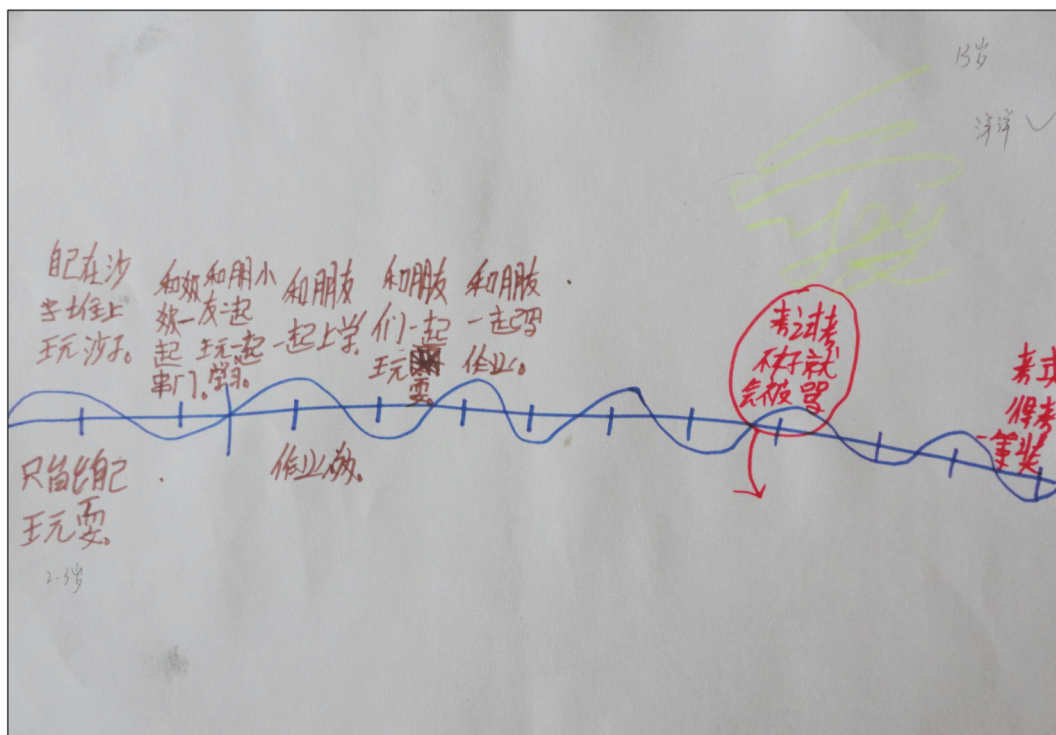 13岁
洋洋
自己在沙
子堆上
玩沙子。
和奶
奶一
起
串门。
和朋小
友一起
玩一起
学习。
和朋友
一起上学
和朋友
们一起
玩
耍。
和朋友
一起写
作业。
考试考
不好就
会被骂
考试
得考
一等奖
只能自己
玩耍。
2-3岁
作业